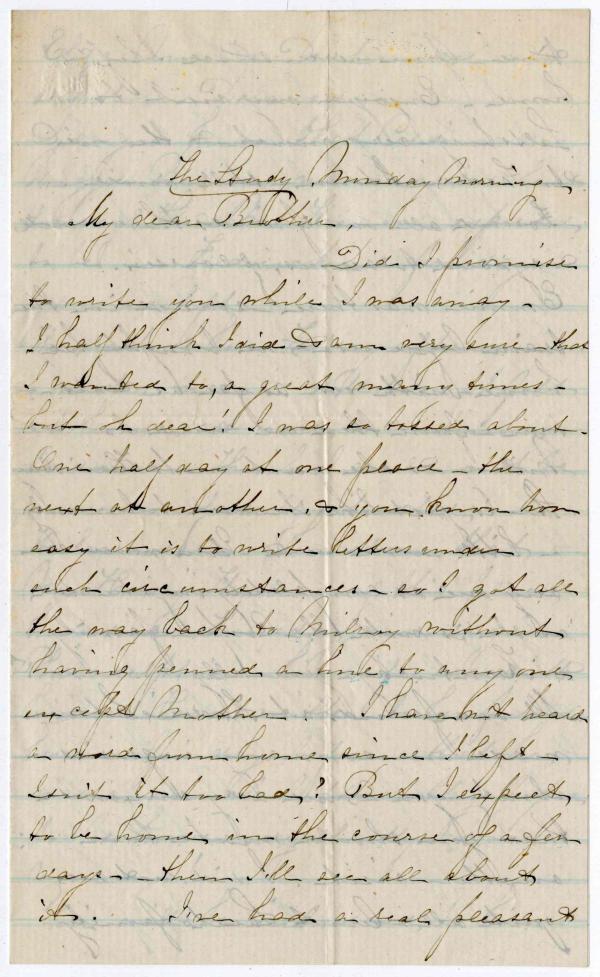 The Study, Monday Morning,
My dear Brother,
Did I promise
to write you while I was away -
I half think I did & am very sure - that
I wanted to, a great many times -
but Oh dear! I was so tossed about.
One half day at one place - the
next at another, & you know how
easy it is to write letters under
such circumstances - so I got all
the way back to without
having penned a line to any one
except Mother. I have not heard
a word from home since I left -
Isn't it too bad? But I expect
to be home in the course of a few
days - then I'll see all about
it. I've had a real pleasant